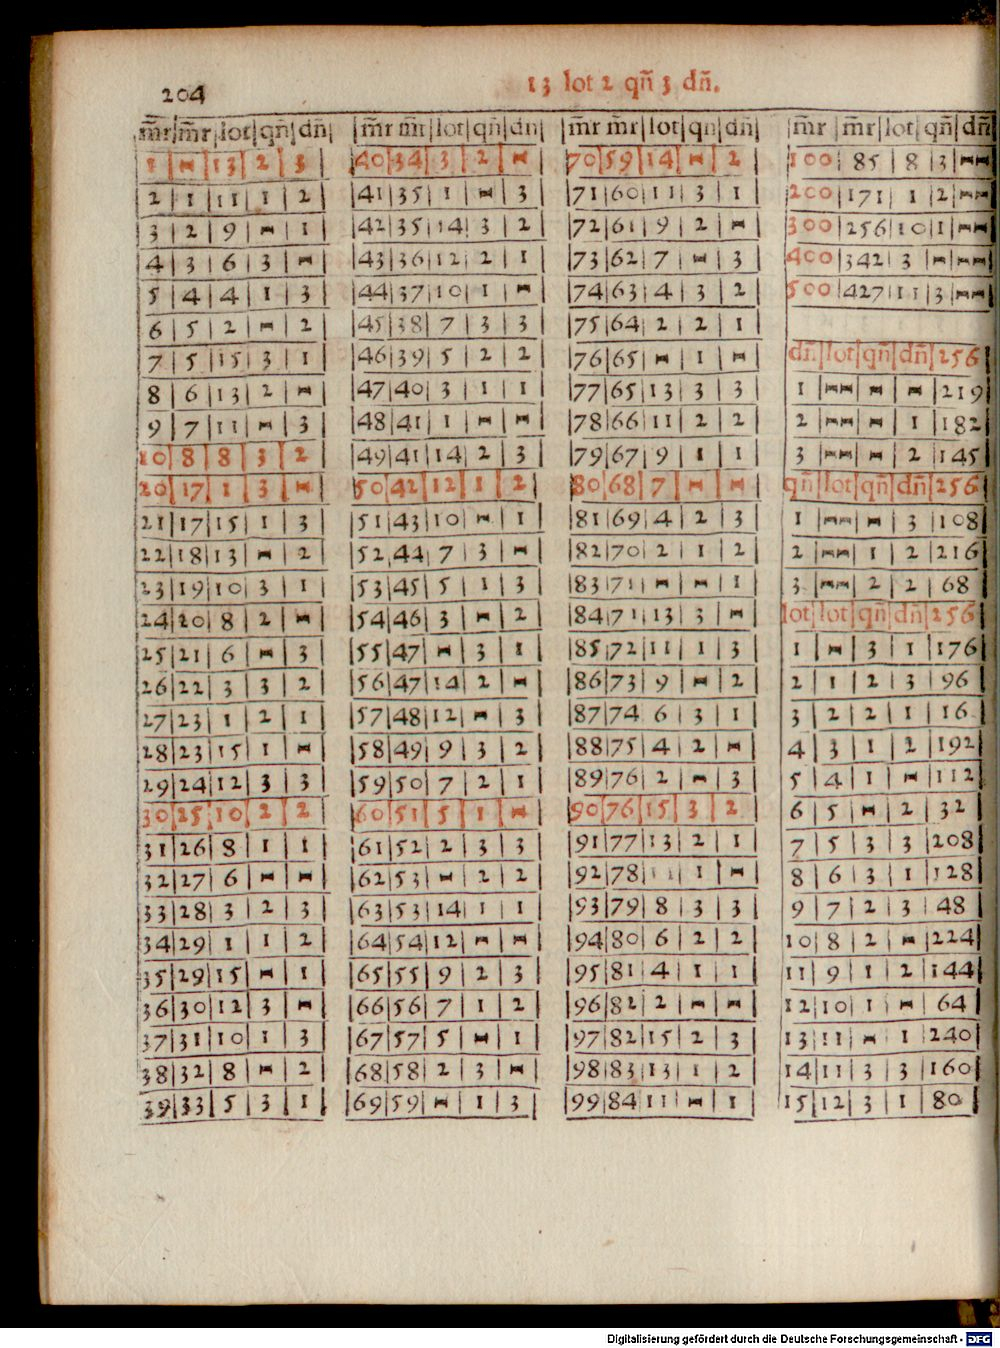 204
13 lot 2 qñ 3 dñ.
m̃r|m̃r|lot|qñ|dñ|
1|-|13|2|3|
2|1|11|1|2|
3|2|9|-|1|
4|3|6|3|-|
5|4|4|1|3|
6|5|2|-|2|
7|5|15|3|1|
8|6|13|2|-|
9|7|11|-|3|
10|8|8|3|2|
20|17|1|3|-|
21|17|15|1|3|
22|18|13|-|2|
23|19|10|3|1|
24|20|8|2|-|
25|21|6|-|3|
26|22|3|3|2|
27|23|1|2|1|
28|23|15|1|-|
29|24|12|3|3|
30|25|10|2|2|
31|26|8|1|1|
32|27|6|-|-|
33|28|3|2|3|
34|29|1|1|2|
35|29|15|-|1|
36|30|12|3|-|
37|31|10|1|3|
38|32|8|-|2|
39|33|5|3|1|
|m̃r m̃r|lot|qñ|dñ|
|40|34|3|2|-|
|41|35|1|-|3|
|42|35|14|3|2|
|43|36|12|2|1|
|44|37|10|1|-|
|45|38|7|3|3|
|46|39|5|2|2|
|47|40|3|1|1|
|48|41|1|-|-|
|49|41|14|2|3|
|50|42|12|1|2|
|51|43|10|-|1|
|52|44|7|3|-|
|53|45|5|1|3|
|54|46|3|-|2|
|55|47|-|3|1|
|56|47|14|2|-|
|57|48|12|-|3|
|58|49|9|3|2|
|59|50|7|2|1|
|60|51|5|1|-|
|61|52|2|3|3|
|62|53|-|2|2|
|63|53|14|1|1|
|64|54|12|-|-|
|65|55|9|2|3|
|66|56|7|1|2|
|67|57|5|-|1|
|68|58|2|3|-|
|69|59|-|1|3|
|m̃r m̃r|lot|qñ|dñ|
|70|59|14|-|2|
|71|60|11|3|1|
|72|61|9|2|-|
|73|62|7|-|3|
|74|63|4|3|2|
|75|64|2|2|1|
|76|65|-|1|-|
|77|65|13|3|3|
|78|66|11|2|2|
|79|67|9|1|1|
|80|68|7|-|-|
|81|69|4|2|3|
|82|70|2|1|2|
|83|71|-|-|1|
|84|71|13|3|-|
|85|72|11|1|3|
|86|73|9|-|2|
|87|74|6|3|1|
|88|75|4|2|-|
|89|76|2|-|3|
|90|76|15|3|2|
|91|77|13|2|1|
|92|78|11|1|-|
|93|79|8|3|3|
|94|80|6|2|2|
|95|81|4|1|1|
|96|82|2|-|-|
|97|82|15|2|3|
|98|83|13|1|2|
|99|84|11|-|1|
|m̃r|m̃r|lot|qñ|dñ|
|100|85|8|3|--|
200|171|1|2|--|
300|256|10|1|--|
400|342|3|-|--|
500|427|11|3|--|
dñ|lot|qñ|dñ|256
1|--|-|-|219
2|--|-|1|182
3|--|-|2|145
qñ|lot|qñ|dñ|256
1|--|-|3|108
2|--|1|2|216
3|--|2|2|68
lot|lot|qñ|dñ|256
1|-|3|1|176
2|1|2|3|96
3|2|2|1|16
4|3|1|2|192
5|4|1|-|112
6|5|-|2|32
7|5|3|3|208
8|6|3|1|128
9|7|2|3|48
10|8|2|-|224
11|9|1|2|144
12|10|1|-|64
13|11|-|1|240
14|11|3|3|160
15|12|3|1|80
Digitalisierung gefördert durch die Deutsche Forschungsgemeinschaft - DFG